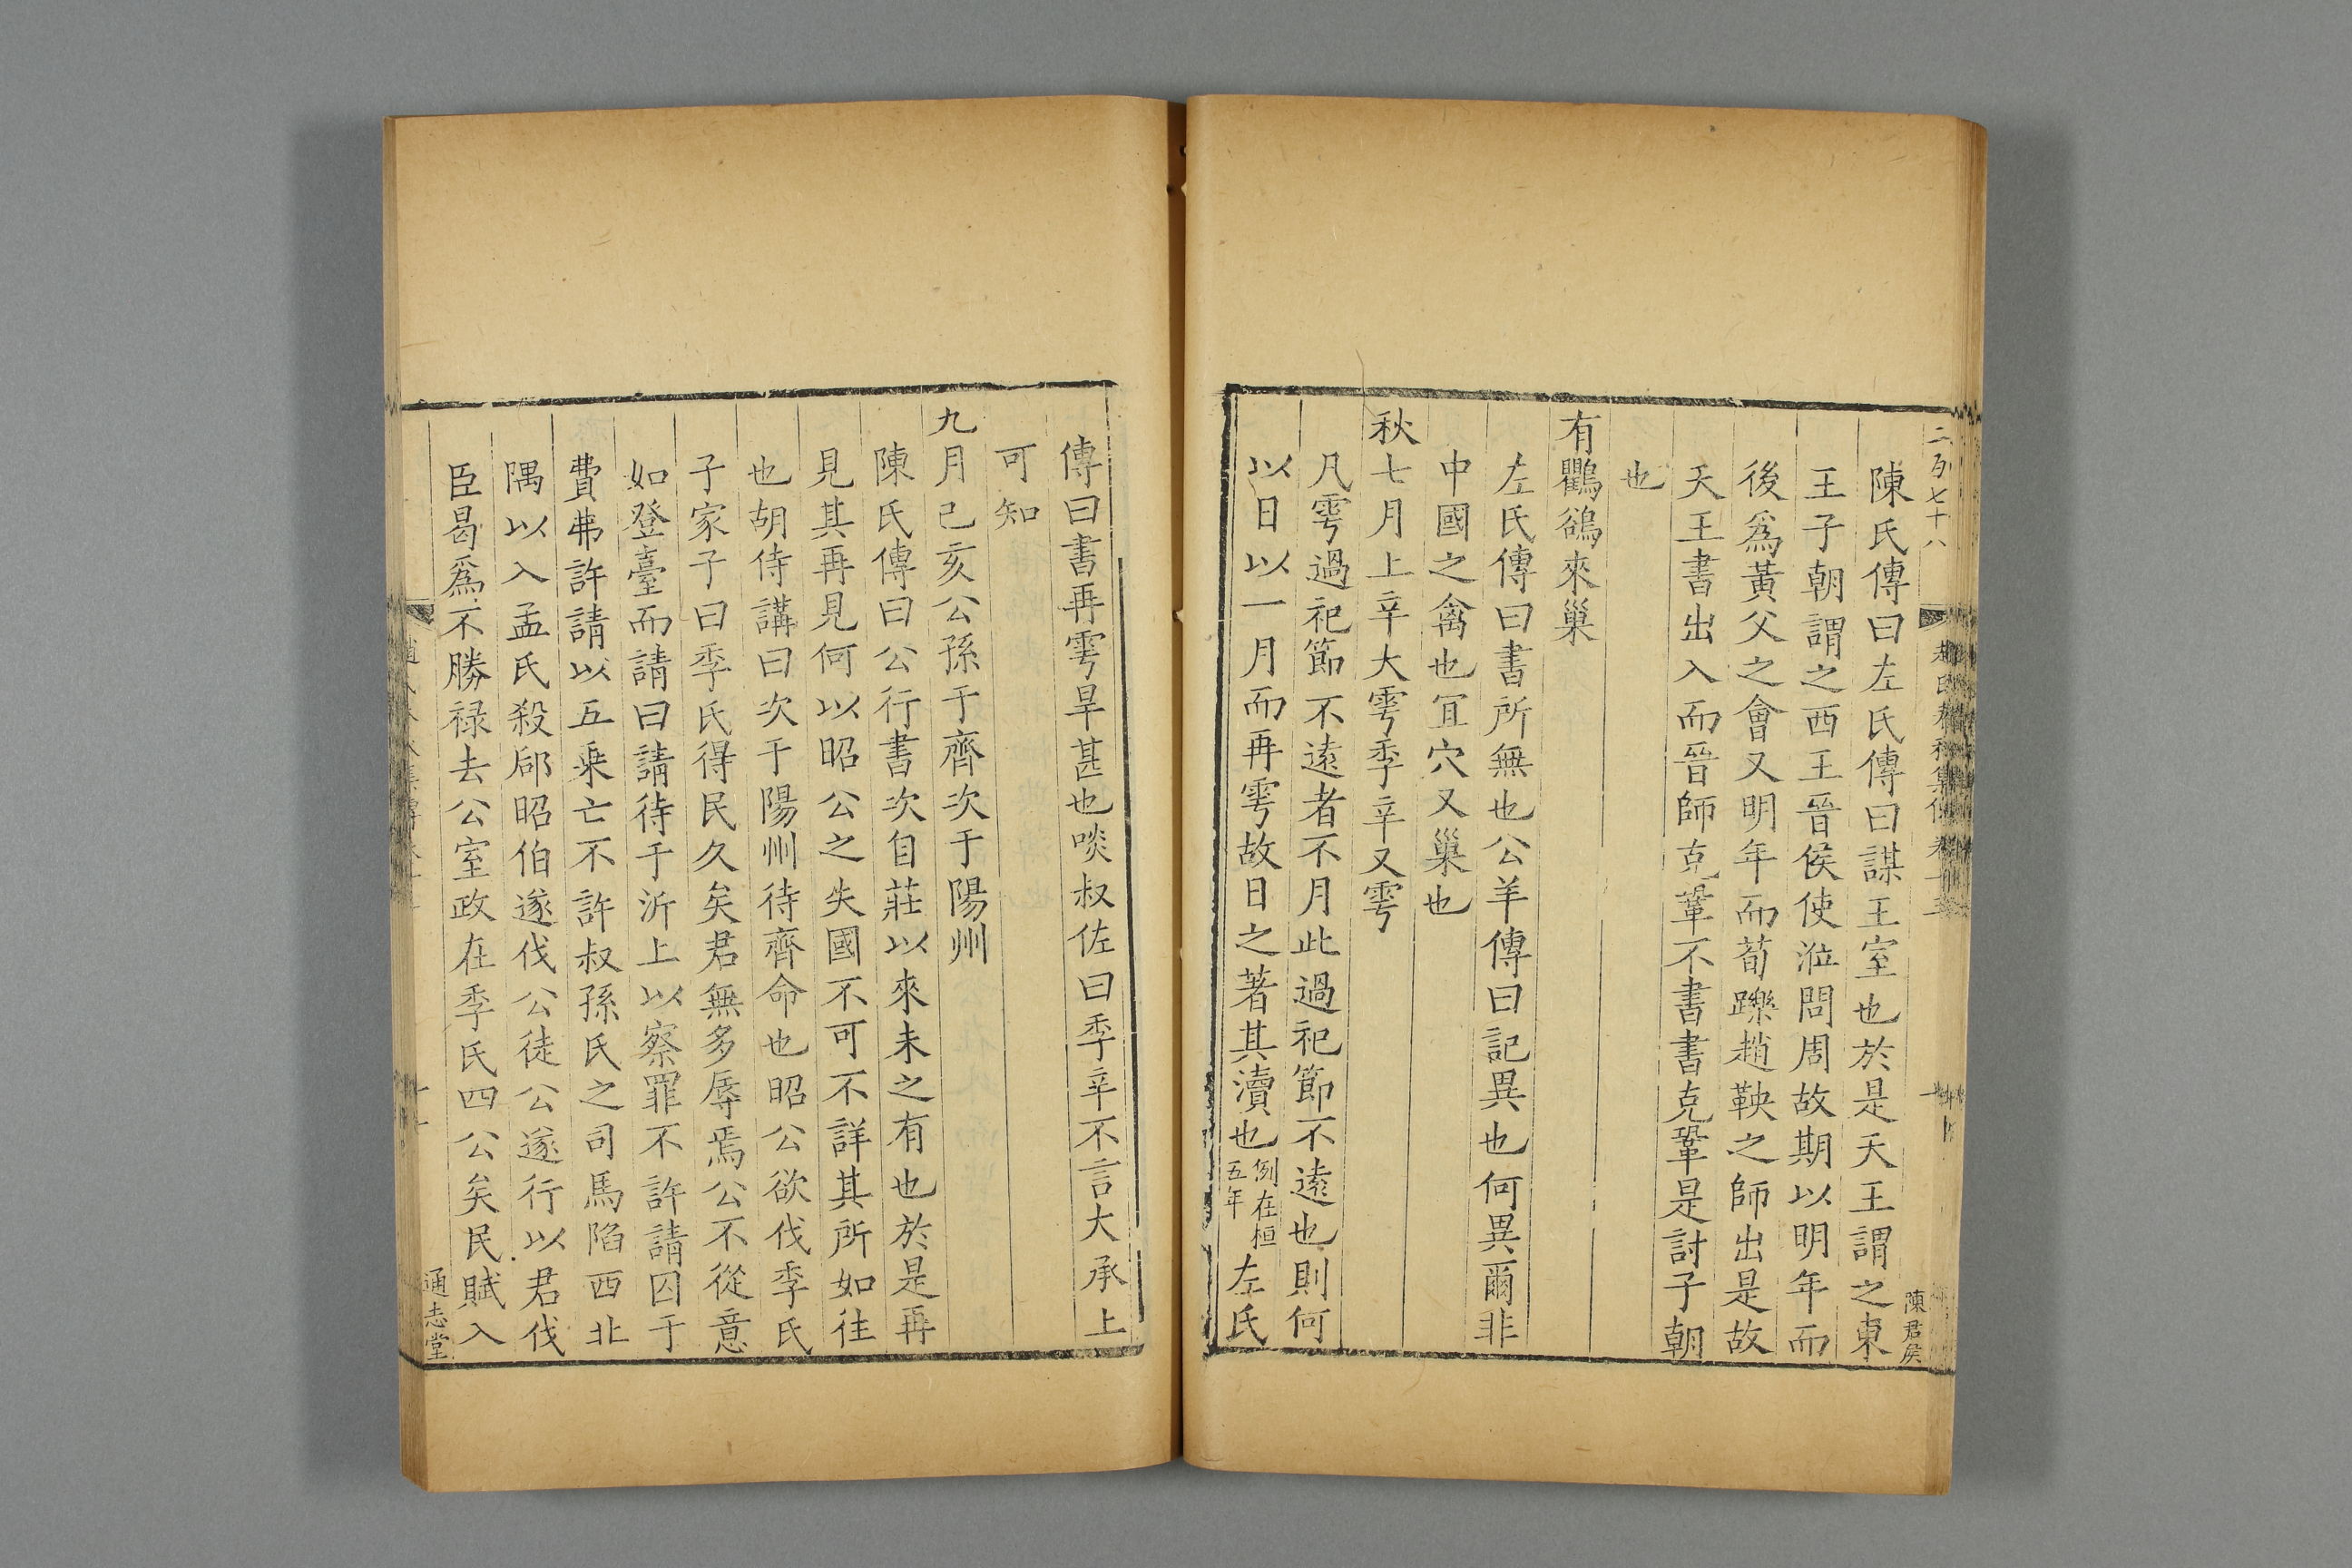 二百七十八
陳君侯
陳氏傳曰左氏傳曰謀王室也於是天王謂之東
王子朝謂之西王晉侯使涖問周故期以明年而
後爲黃父之會又明年而荀躒趙鞅之師出是故
天王書出入而晉師克鞏不書書克鞏是討子朝
也
有鸜鵒來巢
左氏傳曰書所無也公羊傳曰記異也何異爾非
中國之禽也宜穴又巢也
秋七月上辛大雩季辛又雩
凡雩過祀節不遠者不月此過祀節不遠也則何
以日以一月而再雩故日之著其瀆也例在桓五年左氏
傳曰書再雩旱甚也啖叔佐曰季辛不言大承上
可知
九月己亥公孫于齊次于陽州
陳氏傳曰公行書次自莊以來未之有也於是再
見其再見何以昭公之失國不可不詳其所如往
也胡侍講曰次于陽州待齊命也昭公欲伐季氏
子家子曰季氏得民久矣君無多辱焉公不從意
如登臺而請曰請待于沂上以察罪不許請囚于
費弗許請以五乘亡不許叔孫氏之司馬陷西北
隅以入孟氏殺郈昭伯遂伐公徒公遂行以君伐
臣曷爲不勝祿去公室政在季氏四公矣民賦入
通志堂